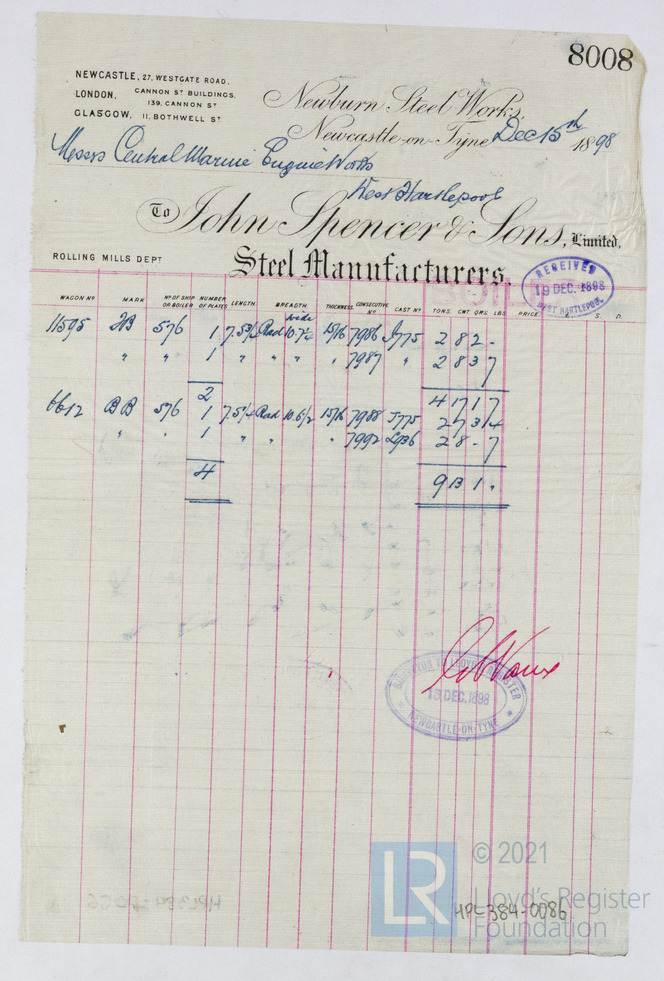 8008
NEWCASTLE, 27, WESTGATE ROAD.
LONDON, CANNON ST BUILDINGS, 139, CANNON ST
GLASGOW, 11, BOTHWELL ST
Newburn Steel Works,
Newcastle-on-Tyne Dec 15th 1898
Messrs Central Marine Engine Works
West Hartlepool
To John Spencer & Sons, Limited,
ROLLING MILLS DEPT
Steel Manufacturers.
RECEIVED
19 DEC. 1898
WEST HARTLEPOOL
WAGON No MARK No OF SHIP OR BOILER NUMBER OF PLATES LENGTH. BREADTH. THICKNESS. CONSECUTIVE No CAST No TONS. CWT. QRS. LBS. PRICE £ S. D.
wide
11595 576 1 7.5 3/4 Rad 10.7 1/2 15/16 7986 2 8 2 -
" " 1 " " " " 7987 " 2 8 3 7
2 4 17 1 7
6612 BB 576 1 7.5 1/4 Rad 10.6 1/2 15/16 7988 J775 2 7 3 14
" " 1 " " " 7992 L936 2 8 - 7
4 9 13 1 "
SURVEYOR TO LLOYD'S REGISTER
15 DEC. 1898
NEWCASTLE-ON-TYNE
LR
© 2021
Lloyd's Register
Foundation
HPL384-0086